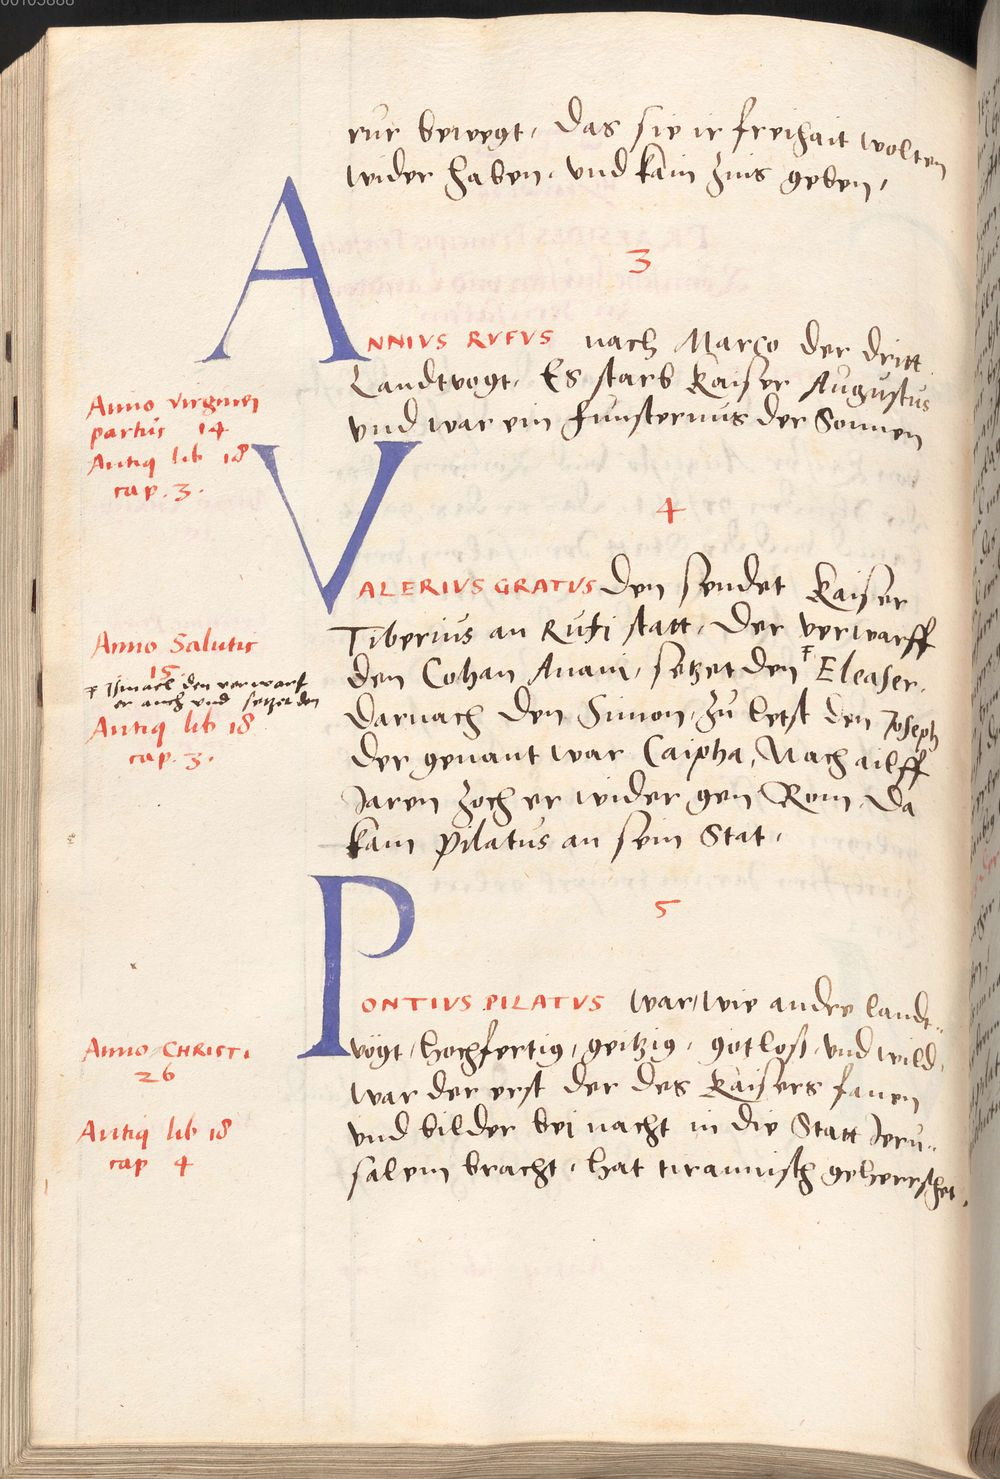 rur bewegt, das sie ir freihait wolten
wider haben, und kain zins geben,
3
ANNIVS RVFVS nach Marco der dritt
Landtvogt, Es starb Kaiser Augustus
und war ein funsternus der Sonnen
Anno virginei
partus 14
Antiq lib 18
cap. 3.
4
VALERIVS GRATVS den sendet Kaiser
Tiberius an Rufi statt, Der verwarff
den Cohan Anani, setzet den Eleaser,
darnach den Simon, zu letst den Joseph
der genant war Caipha, Nach ailff
Jaren zoch er wider gen Rom, Da
kam Pilatus an sein Stat,
Anno Salutis
15
Ismael den verwarf
er auch und setzet den
Antiq lib 18
cap. 3.
5
PONTIVS PILATVS war, wie andre landt„
vögt, hochfertig, geitzig, gotloß, und wild,
war der erst der des Kaisers fanen
und bilder bei nacht in die Statt Jeru„
salem bracht, hat tirannisch geherrschet,
Anno CHRISTI
26
Antiq lib 18
cap 4